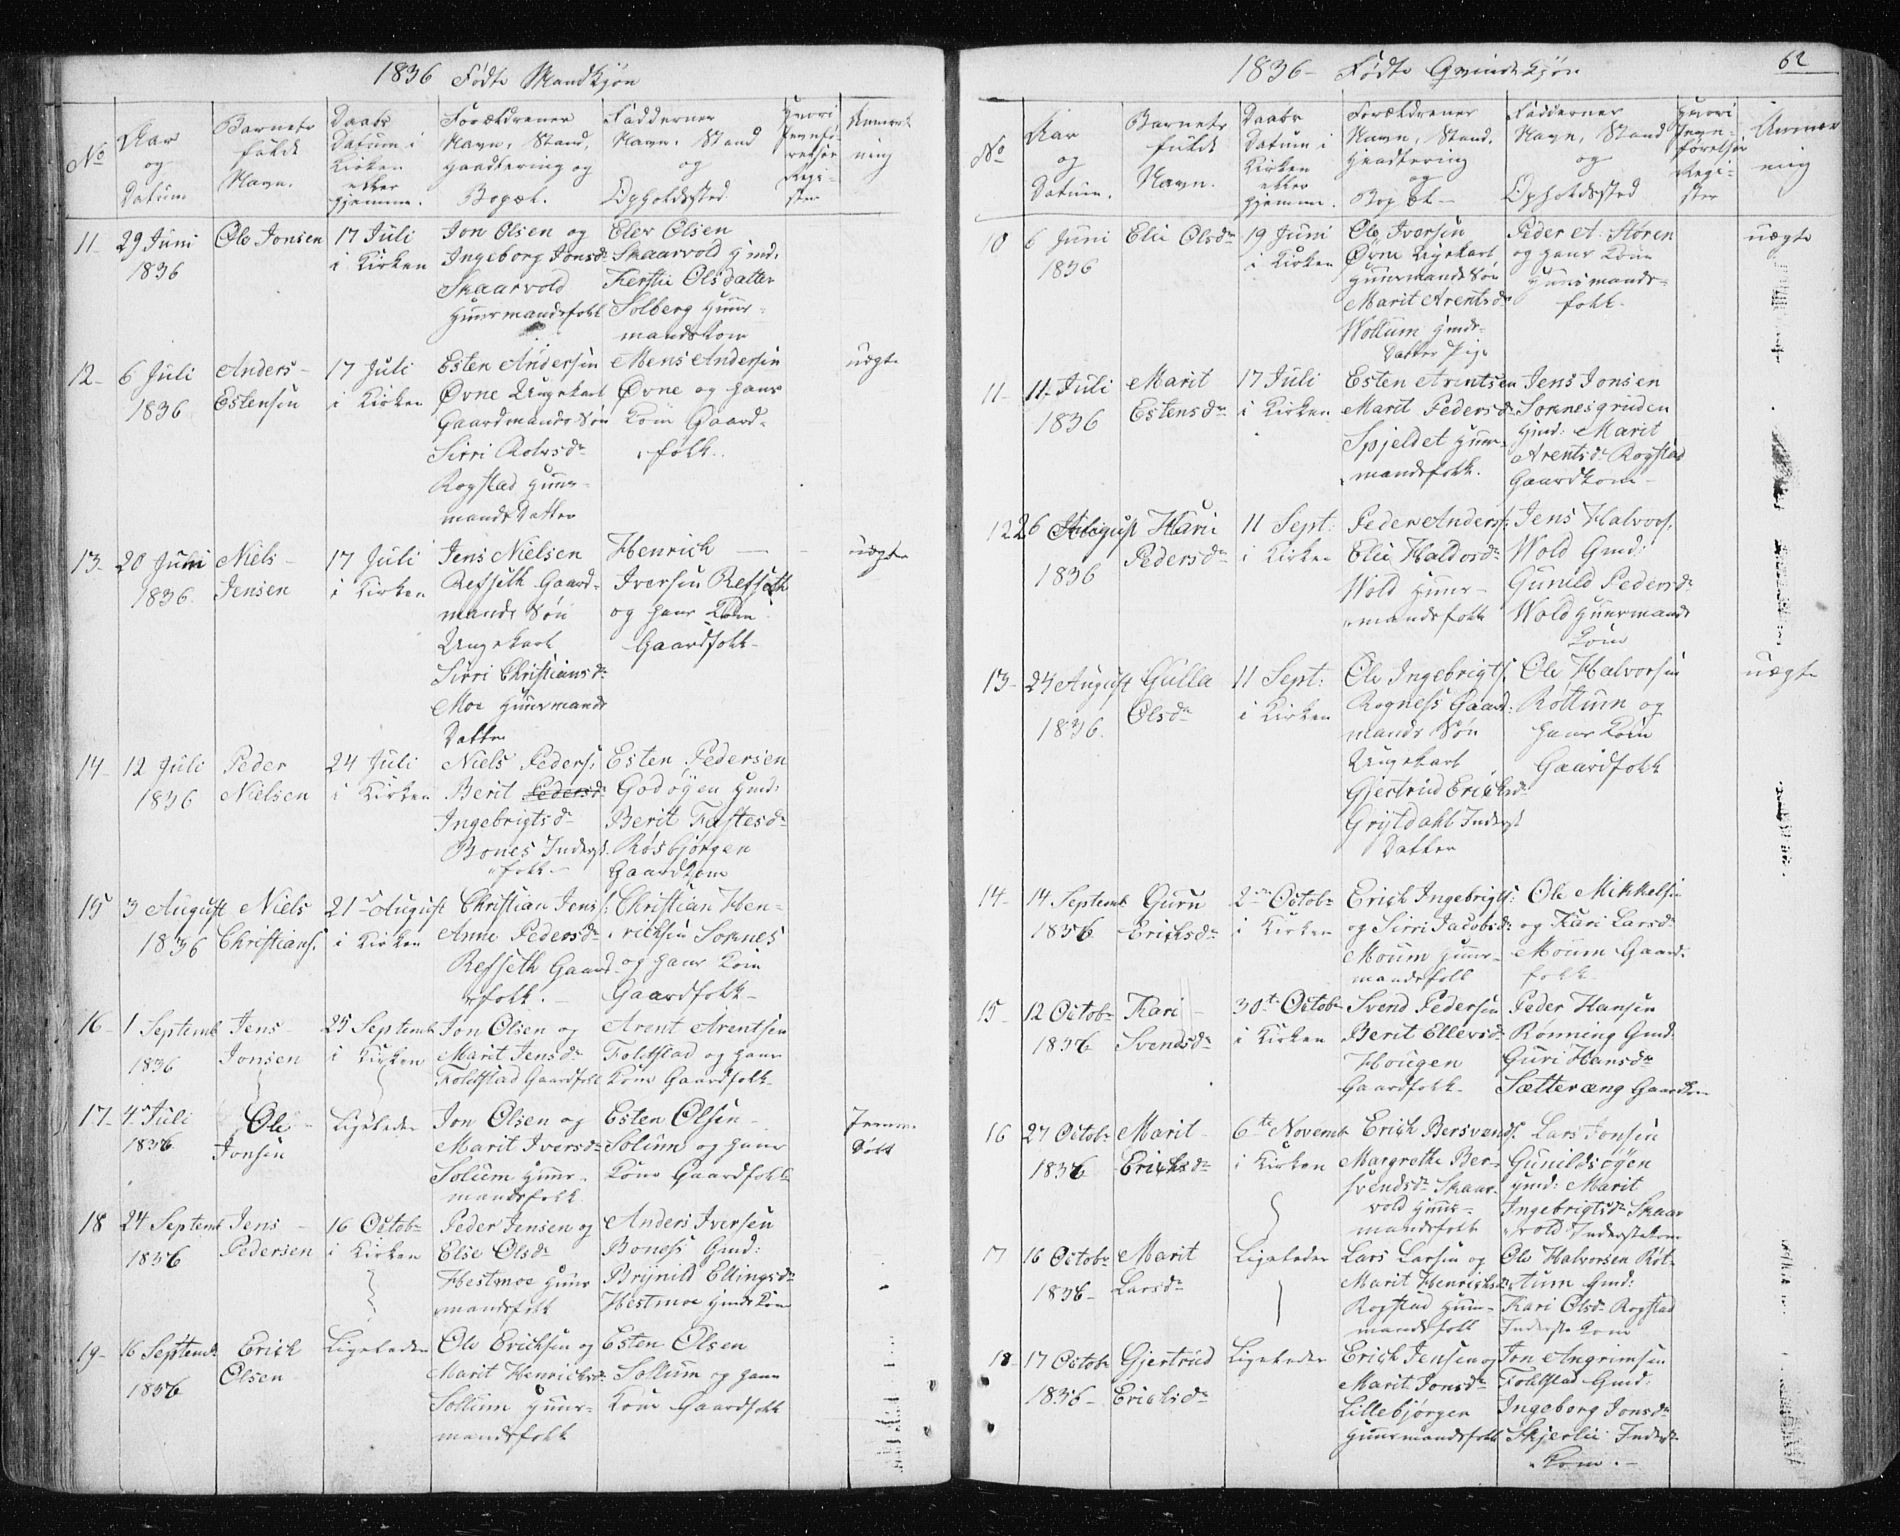 1836 Födte Mandkjön
No
Aar og Datum
Barnets fulde Navn.
Daabs Datum i Kirken eller Hjemme.
Forældrenes Navn, Stand, Haandtering og Bopæl.
Faddernes Navn, Stand og Opholdssted
Hvori Jevnförelses Register
Anmærkning
11. 29 Juni 1836
Ole Jonsen
17 Juli i Kirken
Jon Olsen og
Ingeborg Jonsdr
Skaarvold
Huusmandsfolk
Elev Olsen
Skaarvold Hmd.
Kerstie Olsdatter
Solberg Huus-
mandskone
12- 6 Juli 1836
Anders Estensen
17 Juli i Kirken
Esten Andersen
Øvne Ungekarl
Gaardmands Sön
Sirri Rolvsdr
Rogstad Huus-
mands Datter
Mens Andersen
Øvne og hans
Kone Gaard-
folk.
uægte
13- 20 Juni 1836.
Niels Jensen
17 Juli i Kirken
Jens Nielsen
Refseth Gaard-
mands Sön
Ungekarl
Sirri Christiansdr
Moe Huusmands
Datter
Henrich
Iversen Refseth
og hans Kone
Gaardfolk-
uægte
14- 12 Juli 1836
Peder Nielsen
24 Juli i Kirken
Niels Peders:
Berit Pedersdr
Ingebrigtsdr
Bones Inderst-
folk-
Esten Pedersen
Godøyen Hmd:
Berit Fastesdr
Røsbjørgen
Gaardkone
15 3 August 1836
Niels Christians:
21de August i Kirken
Christian Jens:
Anne Pedersdr
Refseth Gaard-
folk.-
Christian Hen-
ricksen Soknes
og hans Kone
Gaardfolk-
16- 1 Septemb 1836
Jens Jonsen
25 Septemb i Kirken
Jon Olsen og
Marit Jensdr
Foldstad Gaardfolk
Arent Arentsen
Foldstad og hans
Kone Gaardfolk-
17- 4de Juli 1836
Ole Jonsen
Ligeledes
Jon Olsen og
Marit Iversdr
Solum Huus-
mandsfolk
Esten Olsen
Solum og hans
Kone Gaardfolk
Hjemme-
döbt
18 24 Septemb 1836
Jens Pedersen
16 Octobr i Kirken
Peder Jensen og
Else Olsdr
Hestmoe Huus
mandsfolk
Anders Iversen
Boness Gmd:
Brynild Ellingsdr
Hestmoe Hmdskone
19- 16 Septemb 1836
Erich Olsen
Ligeledes
Ole Ericksen og
Marit Henricksdr
Sollum Huus-
mandsfolk
Esten Olsen
Sollum og hans
Kone Gaardfolk
1836- Födte Qvindekjön
62
No
Aar og Datum.
Barnets fulde Navn.
Daabs Datum i Kirken eller Hjemme.
Forældrenes Navn, Stand, Haandtering og Bopæl-
Faddernes Navn, Stand og Opholdssted
Hvori Jevnförelses Register
Anmærkning
10 6 Juni 1836
Elie Olsdr
19 Juni i Kirken
Ole Iversen
Øvne Ungekarl
Huusmands Sön
Marit Arentsdr
Wollum Hmds-
Datter Pige
Peder A. Støren
og hans Kone
Huusmands-
folk-
uægte
11- 11 Juli 1836
Marit Estensdr
17 Juli i Kirken
Esten Arentsen
Marit Pedersdr
Spjeldet Huus-
mandsfolk.
Jens Jonsen
Soknesgruden
Hmd: Marit
Arentsdr Rogstad
Gaardkone-
12 26 August 1836
Kari Pedersdr
11 Sept: i Kirken
Peder Anders:
Elie Haldosdr
Wold Huus-
mandsfolk
Jens Halvors:
Wold Gmd:
Gunild Pedersdr
Wold Huusmands
Kone
13- 24 August 1836.
Gulla Olsdr
11 Sept: i Kirken
Ole Ingebrigts:
Rogness Gaard:
mands Sön
Ungekarl
Gjertrud Ericksdr
Grytdahl Inderst
Datter
Ole Halvorsen
Røttum og
hans Kone
Gaardfolk
uægte
14- 14 Septemb 1836
Guru Ericksdr
2den Octobr i Kirken
Erich Ingebrigts:
og Sirri Jacobsdr
Moum Huus-
mandsfolk
Ole Mikkelsen
og Kari Larsdr
Moum Gaard-
folk-
15- 12 Octobr 1836
Kari Svendsdr
30te Octobr i Kirken
Svend Pedersen
Berit Ellevsdr
Hougen
Gaardfolk-
Peder Hansen
Rønning Gmd.
Guri Hansdr
Sætteræng Gaardkone
16 27 Octobr 1836
Marit Ericksdr
6te Novemb i Kirken
Erich Bersvends.
Margrethe Ber-
svendsdr Skaar-
vold Huus-
mandsfolk
Lars Jonsen
Gunildsøyen
Hmd: Marit
Ingebrigtsdr Skaar
vold Inderstekone
17 16 Octobr 1836-
Marit Larsdr
Ligeledes
Lars Larsen og
Marit Henricksdr
Rogstad Huus-
mandsfolk
Ole Halvorsen Røt-
tum Gmd:
Kari Olsdr Rogstad
Inderste Kone
18- 17 Octobr 1836-
Gjertrud Ericksdr
Ligeledes
Erich Jensen og
Marit Jonsdr
Lillebjørgen
Huusmandsfolk
Jon Angrimsen
Foldstad Gmd:
Ingeborg Jonsdr
Skjerlie Inderst-
Kone.-